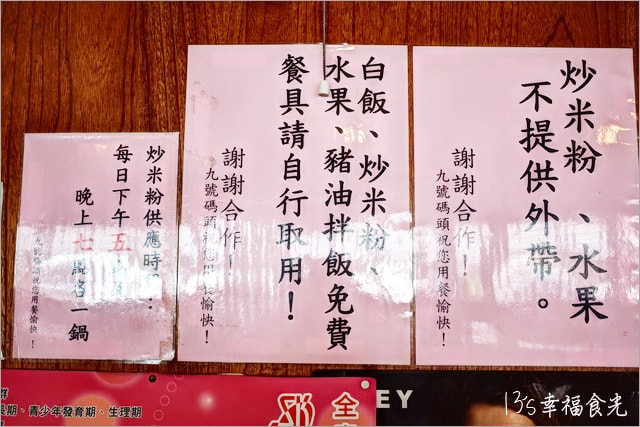 炒米粉、水果
不提供外帶。
謝謝合作!
九號碼頭祝您用餐愉快!
白飯、炒米粉、
水果、豬油拌飯免費
餐具請自行取用!
謝謝合作!
九號碼頭祝您用餐愉快!
炒米粉供應時
每日下午五
晚上七 一鍋
九號碼頭祝您用餐愉快!
群
長期、青少年發育期、生理期
全
EY
13's幸福食光